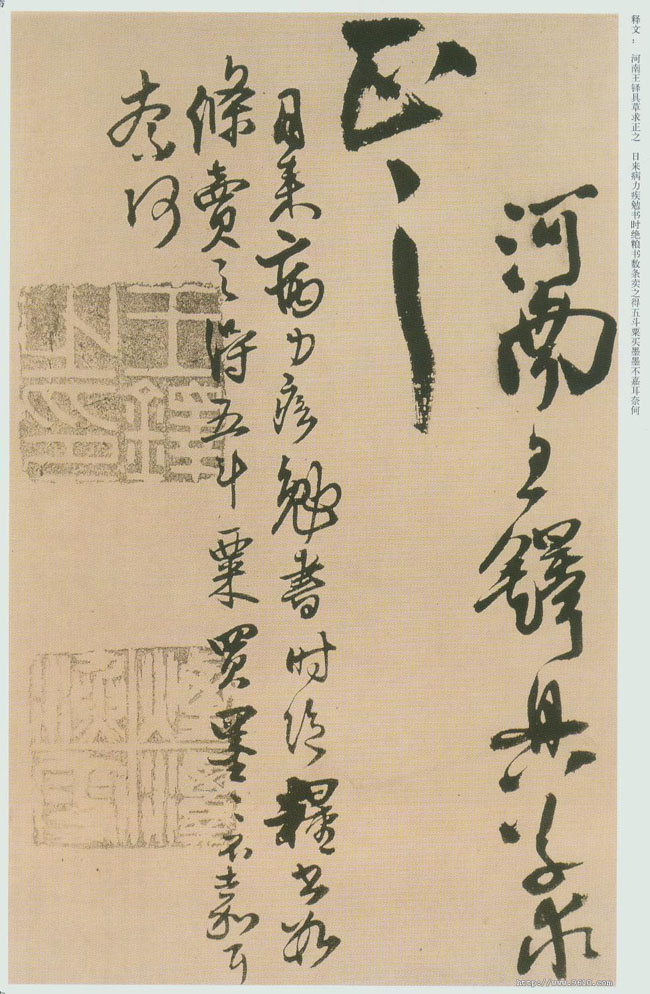 释文： 河南王铎具草求正之 日来病力疾勉书时绝粮书数条卖之得五斗粟买墨墨不嘉耳奈何
河南王鐸具草求
正之
日來病力疾勉書時絕糧書數
條賣之得五斗粟買墨〻不嘉耳
奈何
王鐸之印
http://www.9610.com